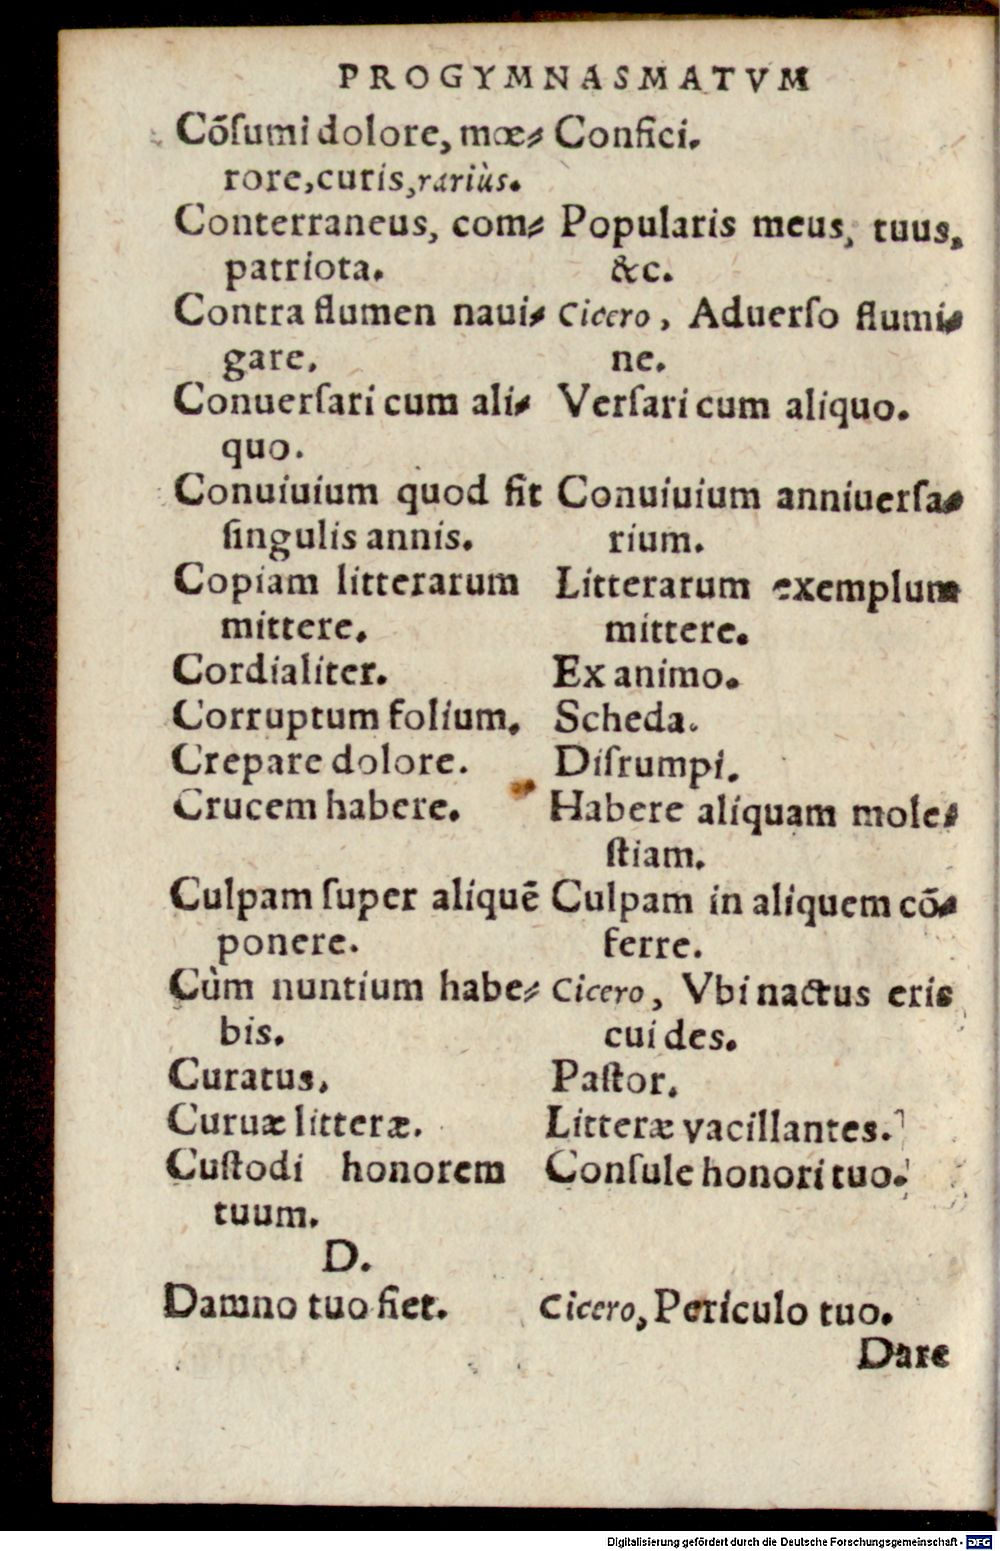 PROGYMNASMATVM
Cõſumi dolore, mœ⸗ Confici.
rore, curis, rariùs.
Conterraneus, com⸗ Popularis meus, tuus,
patriota. &c.
Contra flumen naui⸗ Cicero, Aduerſo flumi⸗
gare. ne.
Conuerſari cum ali⸗ Verſari cum aliquo.
quo.
Conuiuium quod fit Conuiuium anniuerſa⸗
ſingulis annis. rium.
Copiam litterarum Litterarum exemplum
mittere. mittere.
Cordialiter. Ex animo.
Corruptum folium. Scheda.
Crepare dolore. Diſrumpi.
Crucem habere. Habere aliquam mole⸗
ſtiam.
Culpam ſuper aliquẽ Culpam in aliquem cõ⸗
ponere. ferre.
Cùm nuntium habe⸗ Cicero, Vbi nactus eris
bis. cui des.
Curatus. Paſtor.
Curuæ litteræ. Litteræ vacillantes.
Cuſtodi honorem Conſule honori tuo.
tuum.
D.
Damno tuo fiet. Cicero, Periculo tuo.
Dare
Digitalisierung gefördert durch die Deutsche Forschungsgemeinschaft - DFG